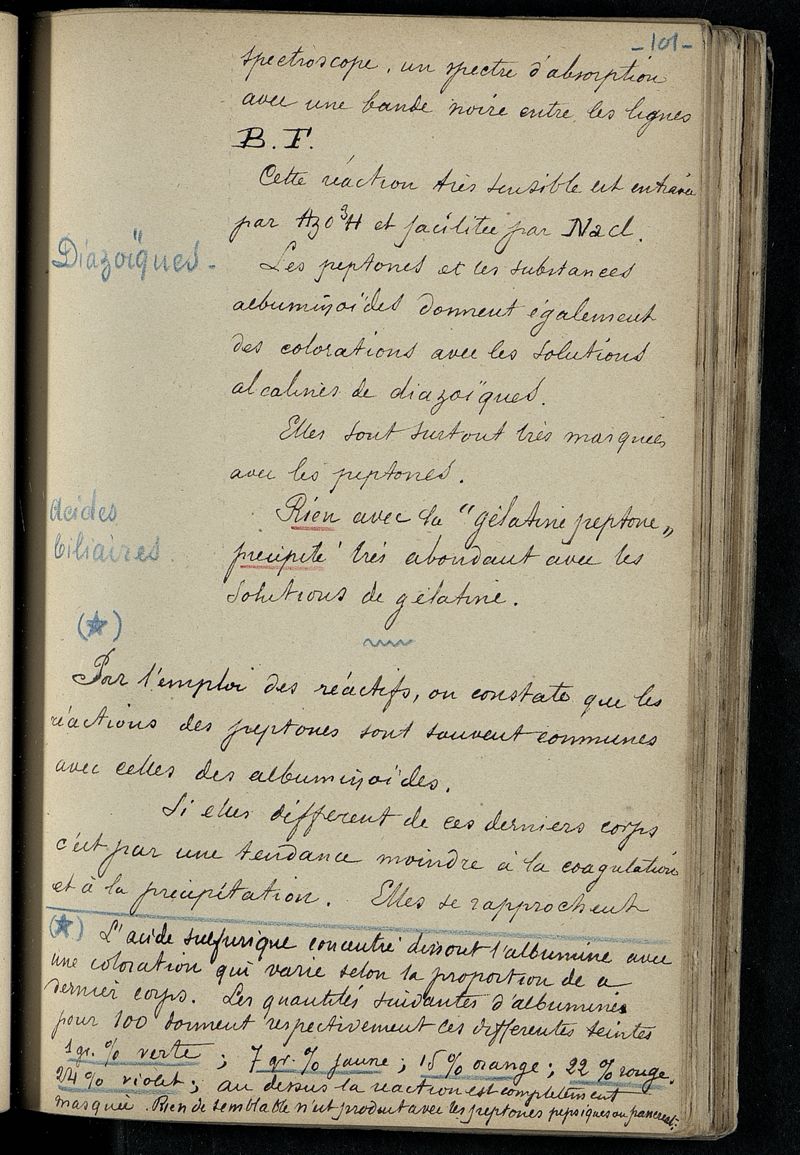 -101-
spectroscope, un spectre d'absorption
avec une bande noire entre les lignes
B. F.
Cette réaction très sensible est entravée
par AzO³H et facilitée par NaCl.
Diazoïques -
Les peptones et les substances
albuminoïdes donnent également
des colorations avec les solutions
alcalines de diazoïques.
Elles sont surtout très marquées
avec les peptones.
Acides
biliaires
(☆)
Rien avec la "gélatine peptone„
précipité très abondant avec les
solutions de gélatine.
Par l'emploi des réactifs, on constate que les
réactions des peptones sont souvent communes
avec celles des albuminoïdes.
Si elles diffèrent de ces derniers corps
c'est par une tendance moindre à la coagulation
et à la précipitation. Elles se rapprochent
(☆) L'acide sulfurique concentré dissout l'albumine avec
une coloration qui varie selon la proportion de ce
dernier corps. Les quantités suivantes d'albumines
pour 100 donnent respectivement ces différentes teintes
1 gr. % verte ; 7 gr. % jaune ; 15 % orange ; 22 % rouge.
24 % violet ; au dessus la réaction est complètement
masquée. Rien de semblable n'est produit avec les peptones pepsiques ou pancréat.